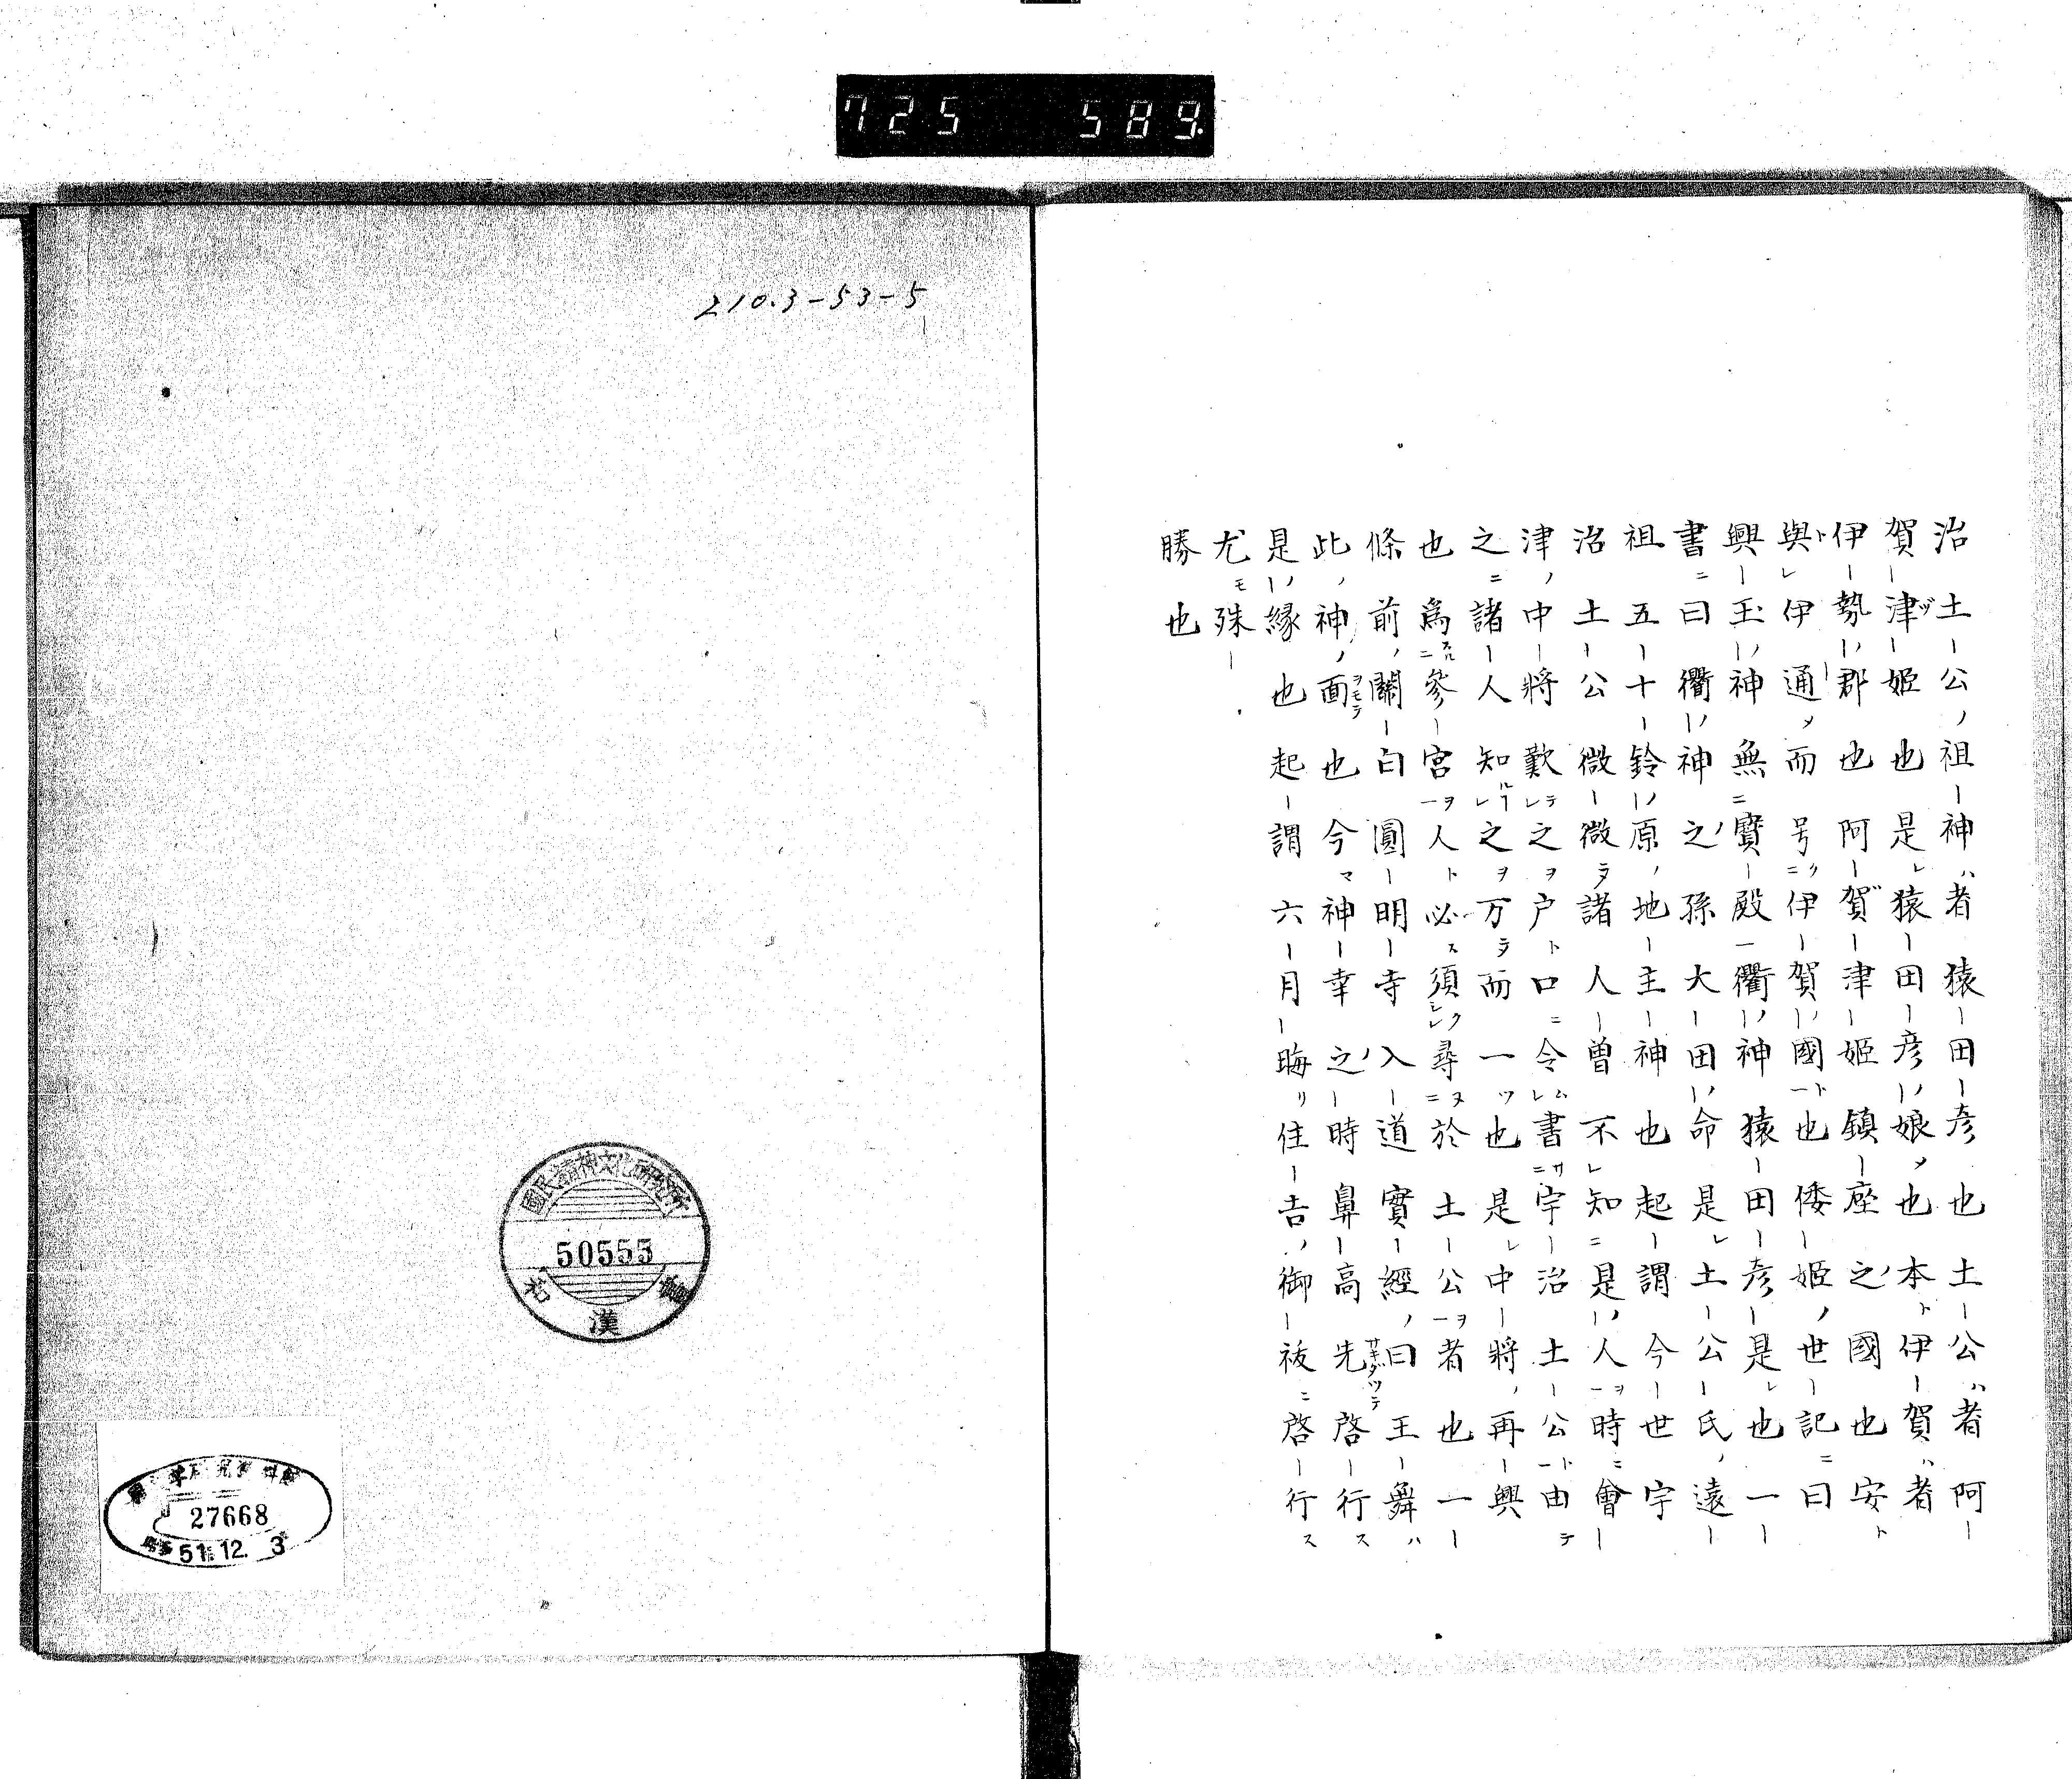 725 589.
治土公ノ祖神ハ者猿田彦也土公ハ者阿
賀津ヅ姫也是レ猿田彦ノ娘メ也本ト伊賀ハ者
伊勢ノ郡也阿賀ガ津姫鎮座之ノ國也安ト
與トレ伊通メ而号クニ伊賀ノ國ト一也倭姫ノ世記ニ曰
興玉ノ神無ニ寶殿一衢ノ神猿田彦是レ也一
書ニ曰衢ノ神之ノ孫大田ノ命是レ土公氏ノ遠
祖五十鈴ノ原ノ地主神也起謂今世宇
治土公微微ラ諸人曽不レ知ニ是ノ人ヲ一時ニ會
津ノ中將歎テレ之ヲ戸ト口ニ令ムレ書サニ宇治土公ト一由テ
之ニ諸人知ルレ之ヲ万ラ而一ツ也是レ中將ノ再興
也爲スルニ參宮ヲ一人ト必ス須シクレ尋ヌニ於土公ヲ一者也一
條前ノ關白圓明寺入道實經ノ曰王舞ハ
此ノ神ノ面ヲモテ也今マ神幸之ノ時鼻高先サキダツテ啓行ス
是ノ縁也起謂六月晦リ住吉ノ御祓ニ啓行ス
尤モ殊
勝也
210.3-53-5
國民精神文化研究所
50555
漢
27668
51.12. 3